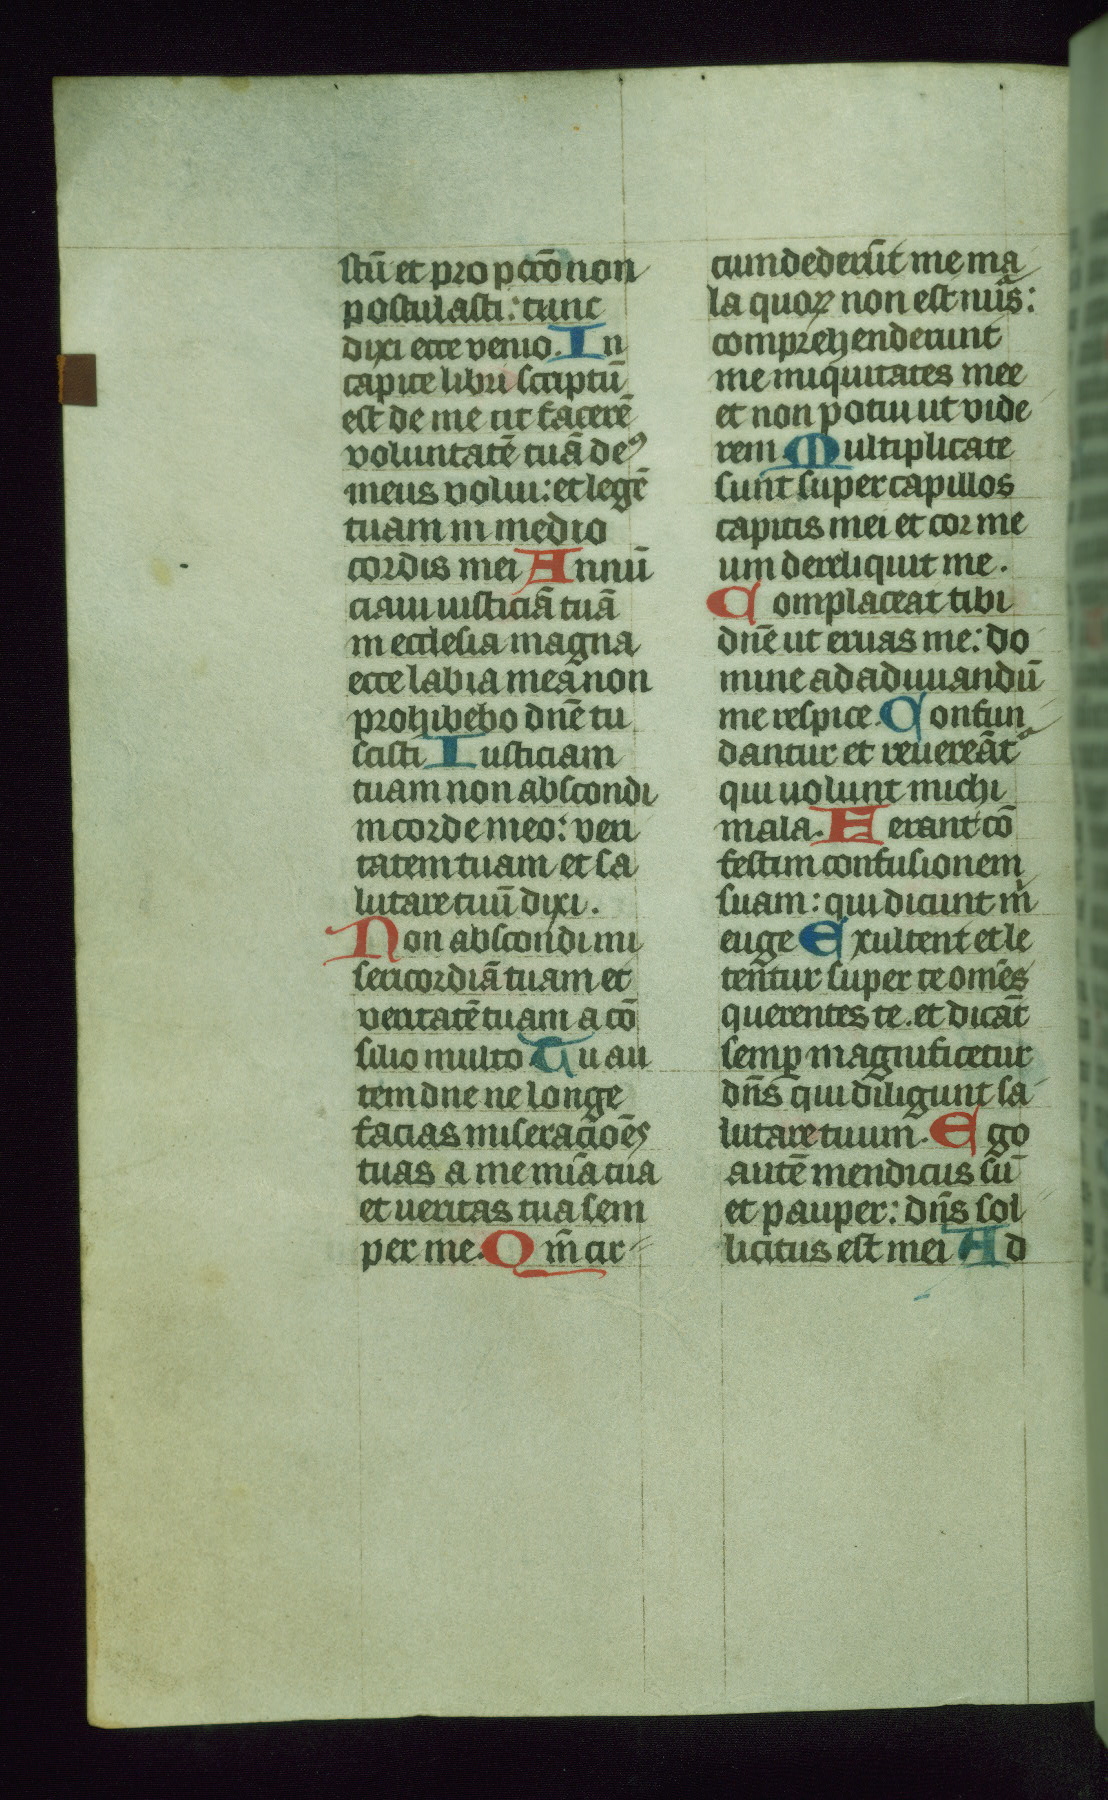 stū et pro pctō non
postulasti: tunc
dixi ecce venio. In
capite libri scriptū
est de me ut facerē
voluntatē tuā deꝰ
meus volui: et legē
tuam in medio
cordis mei Annū
ciaui iusticiā tuā
in ecclesia magna
ecce labia mea non
prohibebo dnē tu
scisti Iusticiam
tuam non abscondi
in corde meo: veri
tatem tuam et sa
lutare tuū dixi.
Non abscondi mi
sericordiā tuam et
veritatē tuam a cō
silio multo Tu au
tem dne ne longe
facias miseracōēs
tuas a me mīa tua
et veritas tua sem
per me. Qm̄ cir
cumdederūt me ma
la quoꝝ non est nūs:
comprehenderunt
me iniquitates mee
et non potui ut vide
rem Multiplicate
sunt super capillos
capitis mei et cor me
um dereliquit me.
Complaceat tibi
dnē ut eruas me: do
mine ad adiuuandū
me respice. Confun
dantur et reuereāt
qui uolunt michi
mala. Ferant cō
festim confusionem
suam: qui dicunt m
euge Exultent et le
tent̄ur super te omēs
querentes te. et dicāt
semꝑ magnificetur
dn̄s qui diligunt sa
lutare tuum. Ego
autē mendicus sū
et pauper: dn̄s sol
licitus est mei Ad